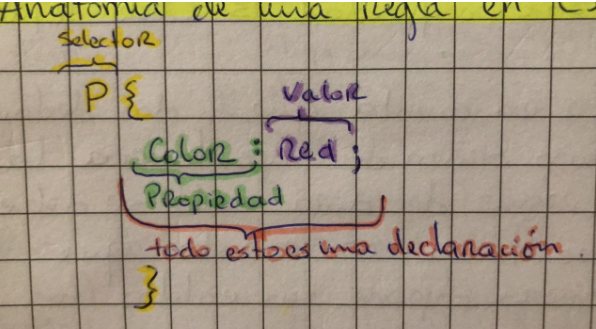 Anatomia de una Regla en CS
Selector
P {
Valor
Color : Red ;
Propiedad
todo esto es una declaración.
}